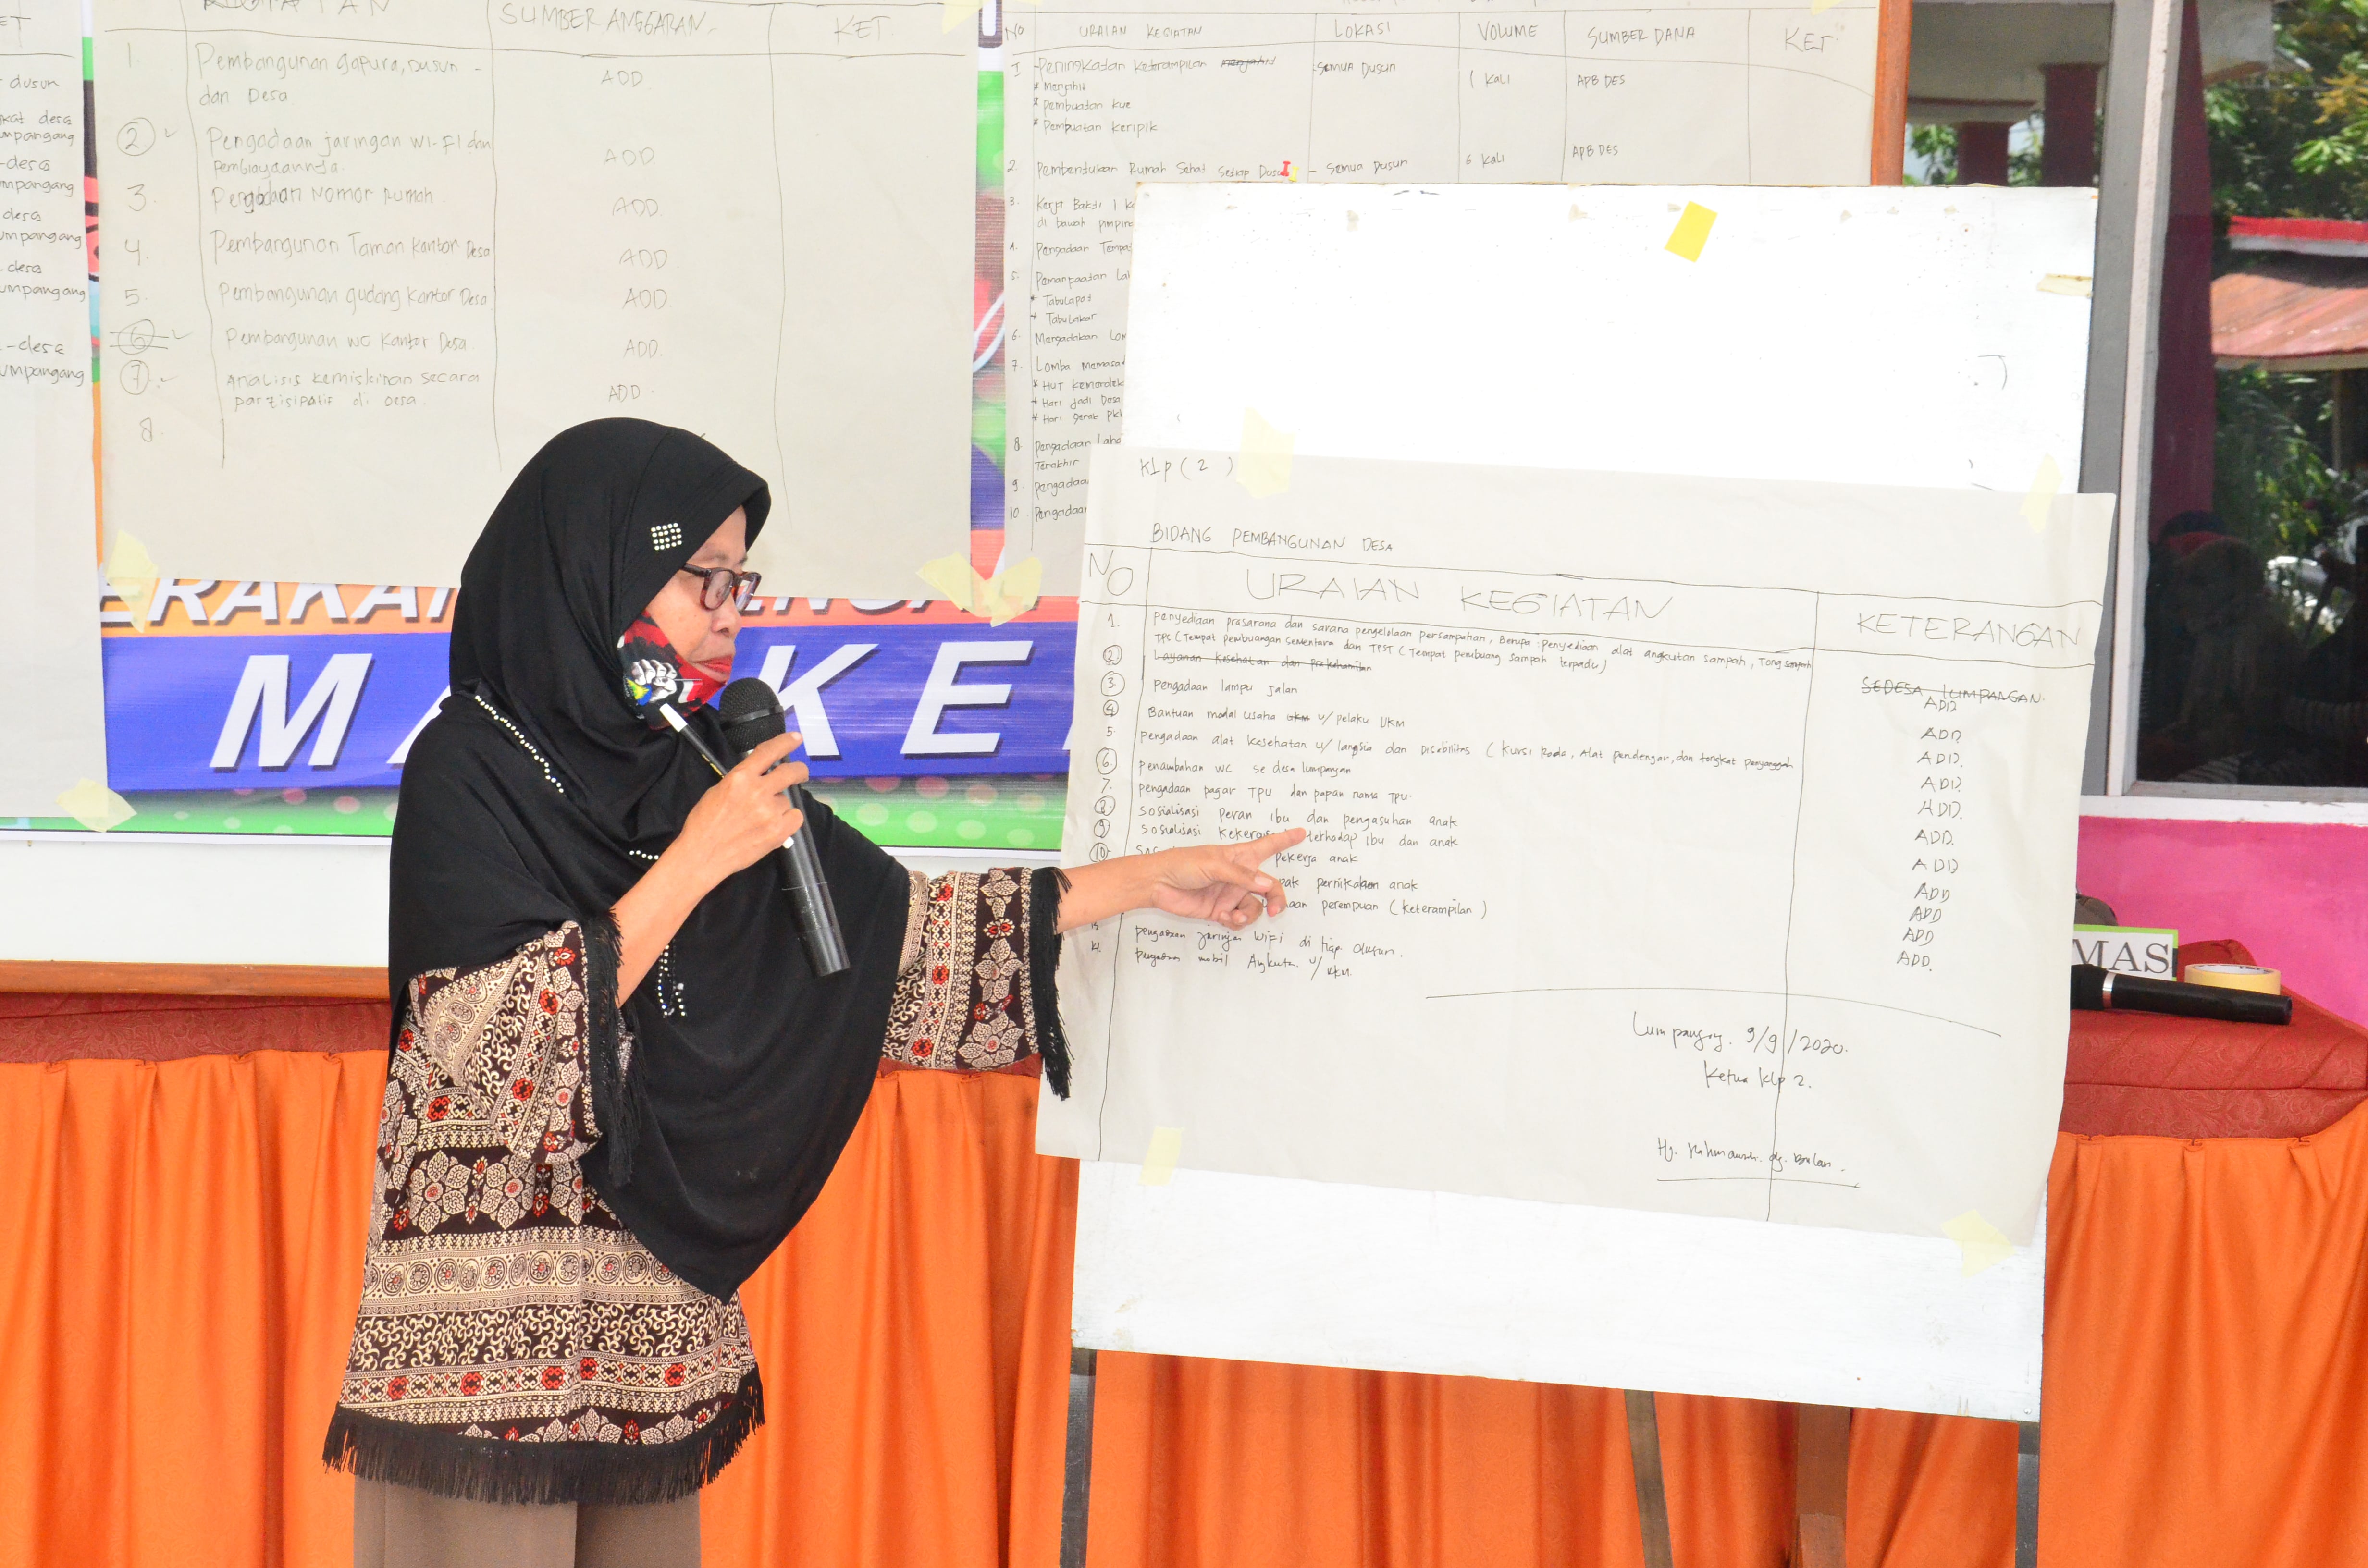 ET
dusun
desa
umpangang
-desa
umpangang
desa
umpangang
desa
umpangang
-desa
umpangang
KEGIATAN
SUMBER ANGGARAN
KET.
1. Pembangunan gapura, Dusun - ADD
dan Desa
2 Pengadaan jaringan Wi-FI dan ADD
pembiayaannya.
3. Pengadaan Nomor Rumah ADD
4. Pembangunan Taman Kantor Desa ADD
5. Pembangunan gudang Kantor Desa ADD
6 Pembangunan WC Kantor Desa ADD.
7. Analisis Kemiskinan secara ADD
partisipatif di Desa.
8.
NO URAIAN KEGIATAN LOKASI VOLUME SUMBER DANA KET
I - Peningkatan Keterampilan SEMUA Dusun 1 Kali APB DES
* Menjahit
* Pembuatan Kue
* Pembuatan Keripik
2. Pembentukan Rumah Sehat Setiap Dusun - Semua Dusun 6 Kali APB DES
3. Kerja Bakti 1 K
di bawah pimpina
Pengadaan Tempa
5. Pemanfaatan La
* Tabulapot
* Tabulakar
6. Mengadakan Lom
7. Lomba Memasa
* HUT Kemerdek
* Hari Jadi Desa
* Hari Gerak PK
8. Pengadaan Laha
Terakhir
9. Pengadaan
10. Pengadaan
ERAKA
MA KE
Klp (2)
BIDANG PEMBANGUNAN DESA
NO URAIAN KEGIATAN KETERANGAN
1. Penyediaan prasarana dan sarana pengelolaan persampahan, Berupa : penyediaan alat angkutan sampah, Tong sampah
TPS (Tempat pembuangan sementara dan TPST (Tempat pembuang sampah terpadu)
2. Layanan Kesehatan dan SEDESA LUMPANGAN.
ADD
3. Pengadaan lampu jalan ADD
4 Bantuan modal usaha UKM u/ pelaku UKM ADD.
5. Pengadaan alat kesehatan u/ langsia dan Disabilitas (Kursi Roda, Alat pendengar, dan tongkat penyanggah ADD.
6. Penambahan WC se desa lumpangan ADD.
7. Pengadaan pagar TPU dan papan nama TPU. ADD.
8. Sosialisasi Peran ibu dan pengasuhan anak ADD
9 Sosialisasi Kekerasan terhadap ibu dan anak ADD
10. pekerja anak ADD
pak pernikahan anak ADD
perempuan (Keterampilan) ADD.
13 pengadaan jaringan WiFi di tiap dusun.
14. pengadaan mobil Angkutan u/ UKM.
Lumpangang. 9/9/2020.
Ketua Klp 2.
MAS